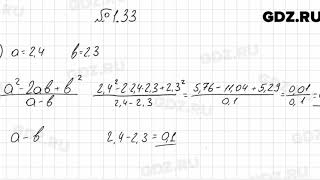 GDZ.RU
№1.33
) a=2,4 b=2,3
a²-2ab+b² / a-b 2,4²-2·2,4·2,3+2,3² / 2,4-2,3 = 5,76-11,04+5,29 / 0,1 = 0,01 / 0,1 =
a-b 2,4-2,3=0,1